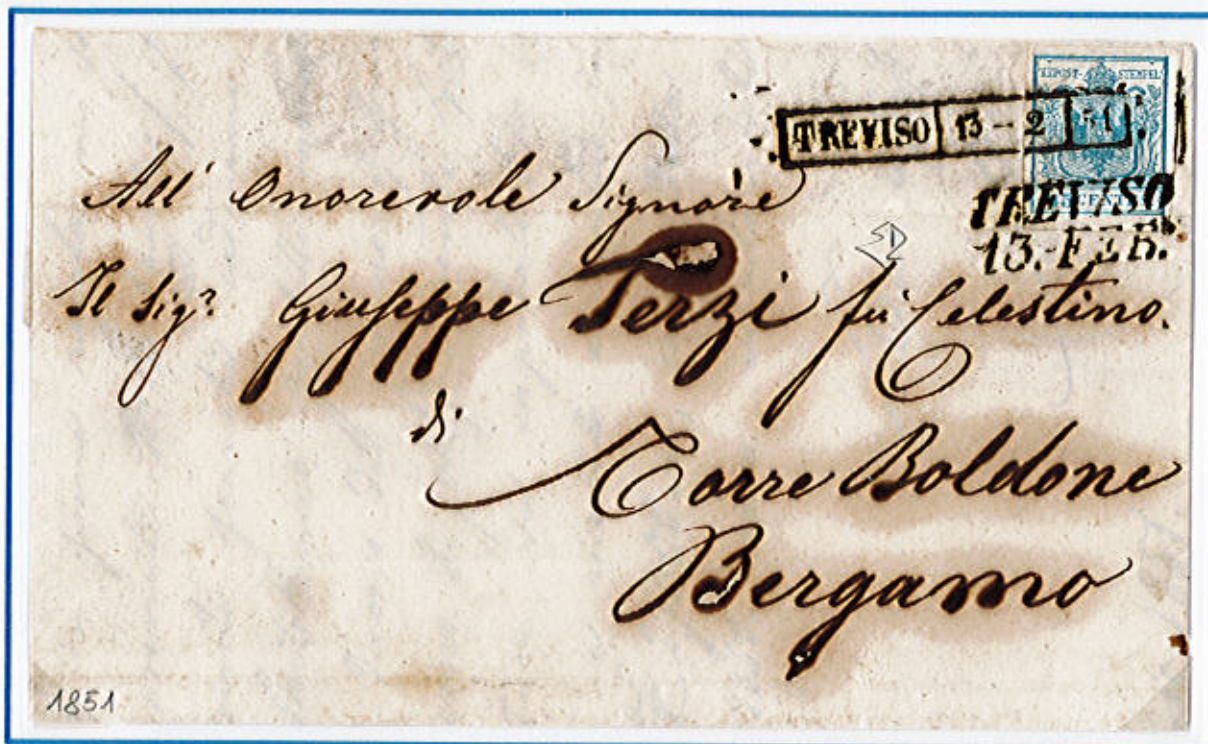 KKPOST-STEMPEL
TREVISO 13-2 51
45 CENTES
TREVISO
13. FEB.
All' Onorevole Signore
SD
Il Sigr Giuseppe Terzi fù Celestino.
di
Torre Boldone
Bergamo
1851